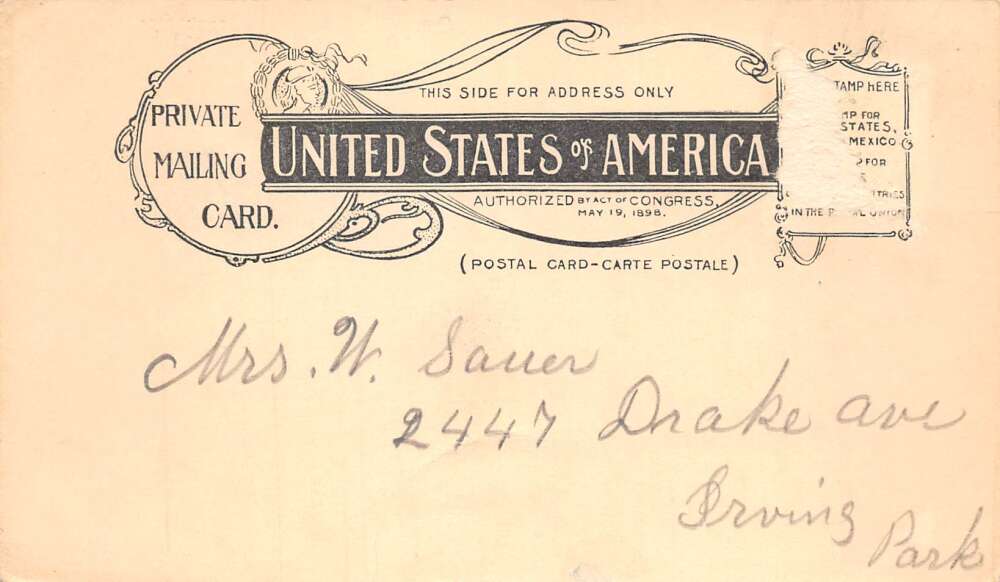 PRIVATE
MAILING
CARD.
THIS SIDE FOR ADDRESS ONLY
UNITED STATES OF AMERICA
AUTHORIZED BY ACT OF CONGRESS,
MAY 19, 1898.
(POSTAL CARD-CARTE POSTALE)
HERE
FOR
STATES,
MEXICO
FOR
IN THE UNION
Mrs. W. Sauer
2447 Drake ave
Irving
Park